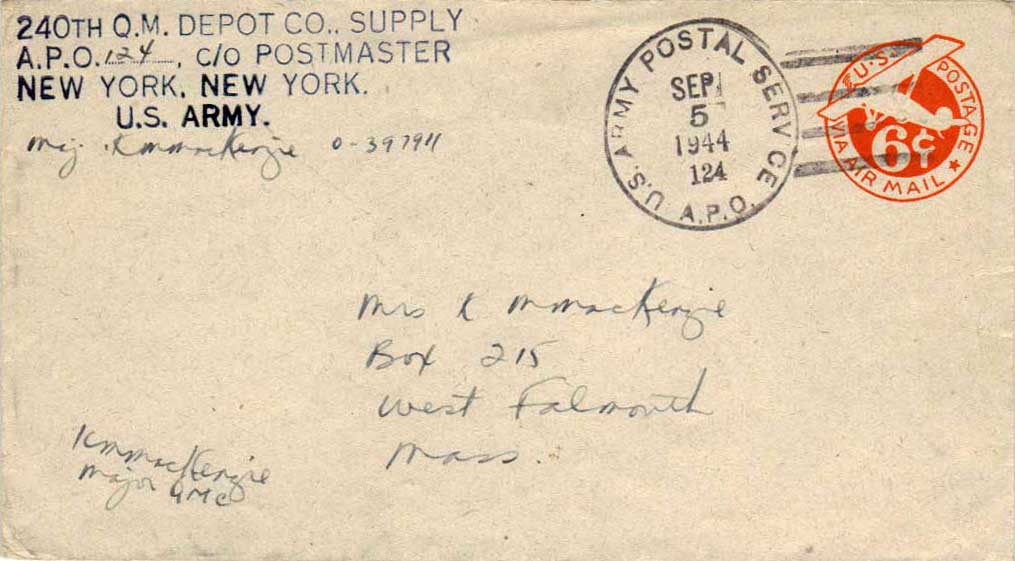 240TH Q.M. DEPOT CO., SUPPLY
A.P.O. 124, C/O POSTMASTER
NEW YORK, NEW YORK.
U.S. ARMY.
Maj. K M MacKenzie 0-397911
U.S. ARMY POSTAL SERVICE
SEP
5
1944
124
A.P.O.
U.S. POSTAGE
6¢
VIA AIR MAIL
Mrs K M MacKenzie
Box 215
West Falmouth
Mass.
K M MacKenzie
Major QMC